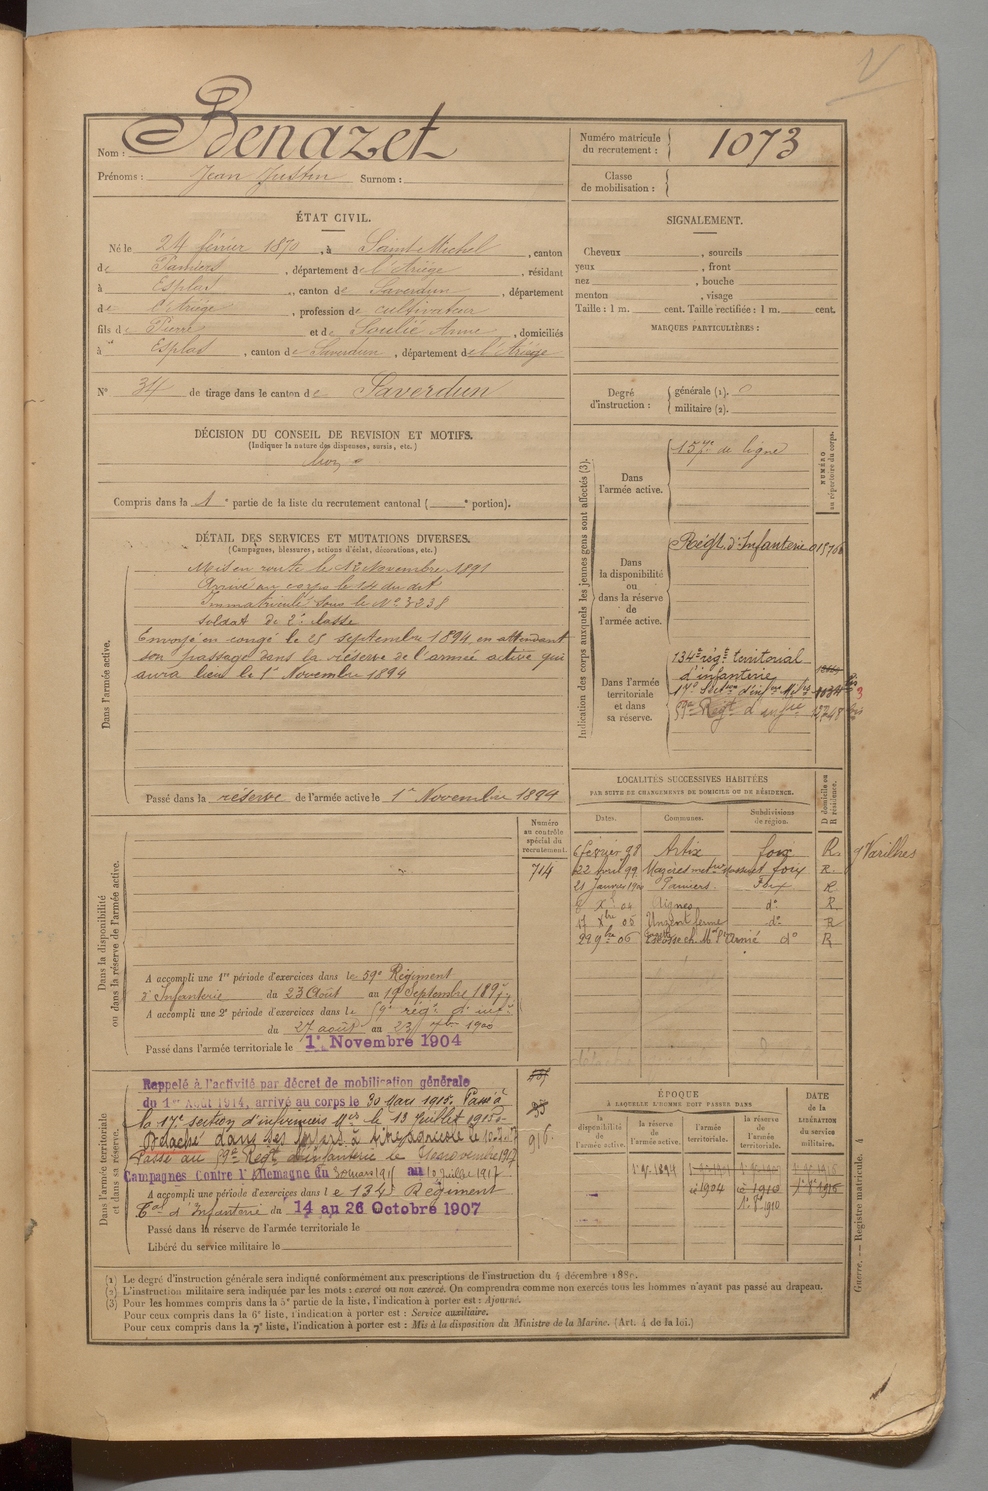 Nom : Benazet
Prénoms : Jean Justin Surnom :
Numéro matricule du recrutement : 1073
Classe de mobilisation :
ÉTAT CIVIL.
Né le 24 février 1870, à Saint Michel, canton
de Pamiers, département de l'Ariège, résidant
à Esplas, canton de Saverdun, département
de l'Ariège, profession de cultivateur
fils de Pierre et de Soulié Anne, domiciliés
à Esplas, canton de Saverdun, département de l'Ariège
N° 34 de tirage dans le canton de Saverdun
SIGNALEMENT.
Cheveux , sourcils
yeux , front
nez , bouche
menton , visage
Taille : 1 m. cent. Taille rectifiée : 1 m. cent.
MARQUES PARTICULIÈRES :
Degré d'instruction : générale (1).
militaire (2).
DÉCISION DU CONSEIL DE REVISION ET MOTIFS.
(Indiquer la nature des dispenses, sursis, etc.)
Compris dans la 1e partie de la liste du recrutement cantonal ( e portion).
DÉTAIL DES SERVICES ET MUTATIONS DIVERSES.
(Campagnes, blessures, actions d'éclat, décorations, etc.)
Dans l'armée active.
Mis en route le 12 Novembre 1891
Arrivé au corps le 14 du dit
Immatriculé sous le N° 3238
soldat de 2e classe
Envoyé en congé le 25 septembre 1894 en attendant
son passage dans la réserve de l'armée active qui
aura lieu le 1er Novembre 1894
Passé dans la réserve de l'armée active le 1er Novembre 1894
Indication des corps auxquels les jeunes gens sont affectés (3).
NUMÉRO au répertoire du corps.
Dans l'armée active.
de ligne
Dans la disponibilité ou dans la réserve de l'armée active.
Régt d'Infanterie
Dans l'armée territoriale et dans sa réserve.
134e régt territorial
d'infanterie
59e Régt d'infie
LOCALITÉS SUCCESSIVES HABITÉES
PAR SUITE DE CHANGEMENTS DE DOMICILE OU DE RÉSIDENCE.
Dates. Communes. Subdivisions de région. D domicile ou R résidence.
6 février 98 Artix Foix R. Varilhes
22 Avril 99 Mazères Foix R.
21 Janvier 190 Pamiers Foix R
04 Aignes do R
17 Xbre 05 Unzent ferme do R
29 9bre 06 do R
Dans la disponibilité ou dans la réserve de l'armée active.
Numéro au contrôle spécial du recrutement.
714
A accompli une 1re période d'exercices dans le 59e Régiment
d'Infanterie du 23 Août au 19 Septembre 1897
A accompli une 2e période d'exercices dans le 59e régt d'inf.
du 27 août au 23 7bre 1900
Passé dans l'armée territoriale le 1er Novembre 1904
Dans l'armée territoriale et dans sa réserve.
Rappelé à l'activité par décret de mobilisation générale
du 1er Août 1914, arrivé au corps le 30 Mars 1915. Passé à
la 17e section d'infirmiers Mres le 13 Juillet 1915
Détaché dans ses foyers
Passé au 59e Régt d'infanterie le
Campagnes Contre l'Allemagne du 30 mars 1915 au 10 juillet 1917
A accompli une période d'exercices dans le 134e Régiment
Tal d'Infanterie du 14 au 26 Octobre 1907
Passé dans la réserve de l'armée territoriale le
Libéré du service militaire le
916
ÉPOQUE
À LAQUELLE L'HOMME DOIT PASSER DANS
la disponibilité de l'armée active.
la réserve de l'armée active.
l'armée territoriale.
la réserve de l'armée territoriale.
DATE de la LIBÉRATION du service militaire.
1904
1910
Guerre. — Registre matricule. 4
(1) Le degré d'instruction générale sera indiqué conformément aux prescriptions de l'instruction du 4 décembre 1889.
(2) L'instruction militaire sera indiquée par les mots : exercé ou non exercé. On comprendra comme non exercés tous les hommes n'ayant pas passé au drapeau.
(3) Pour les hommes compris dans la 5e partie de la liste, l'indication à porter est : Ajourné.
Pour ceux compris dans la 6e liste, l'indication à porter est : Service auxiliaire.
Pour ceux compris dans la 7e liste, l'indication à porter est : Mis à la disposition du Ministre de la Marine. (Art. 4 de la loi.)